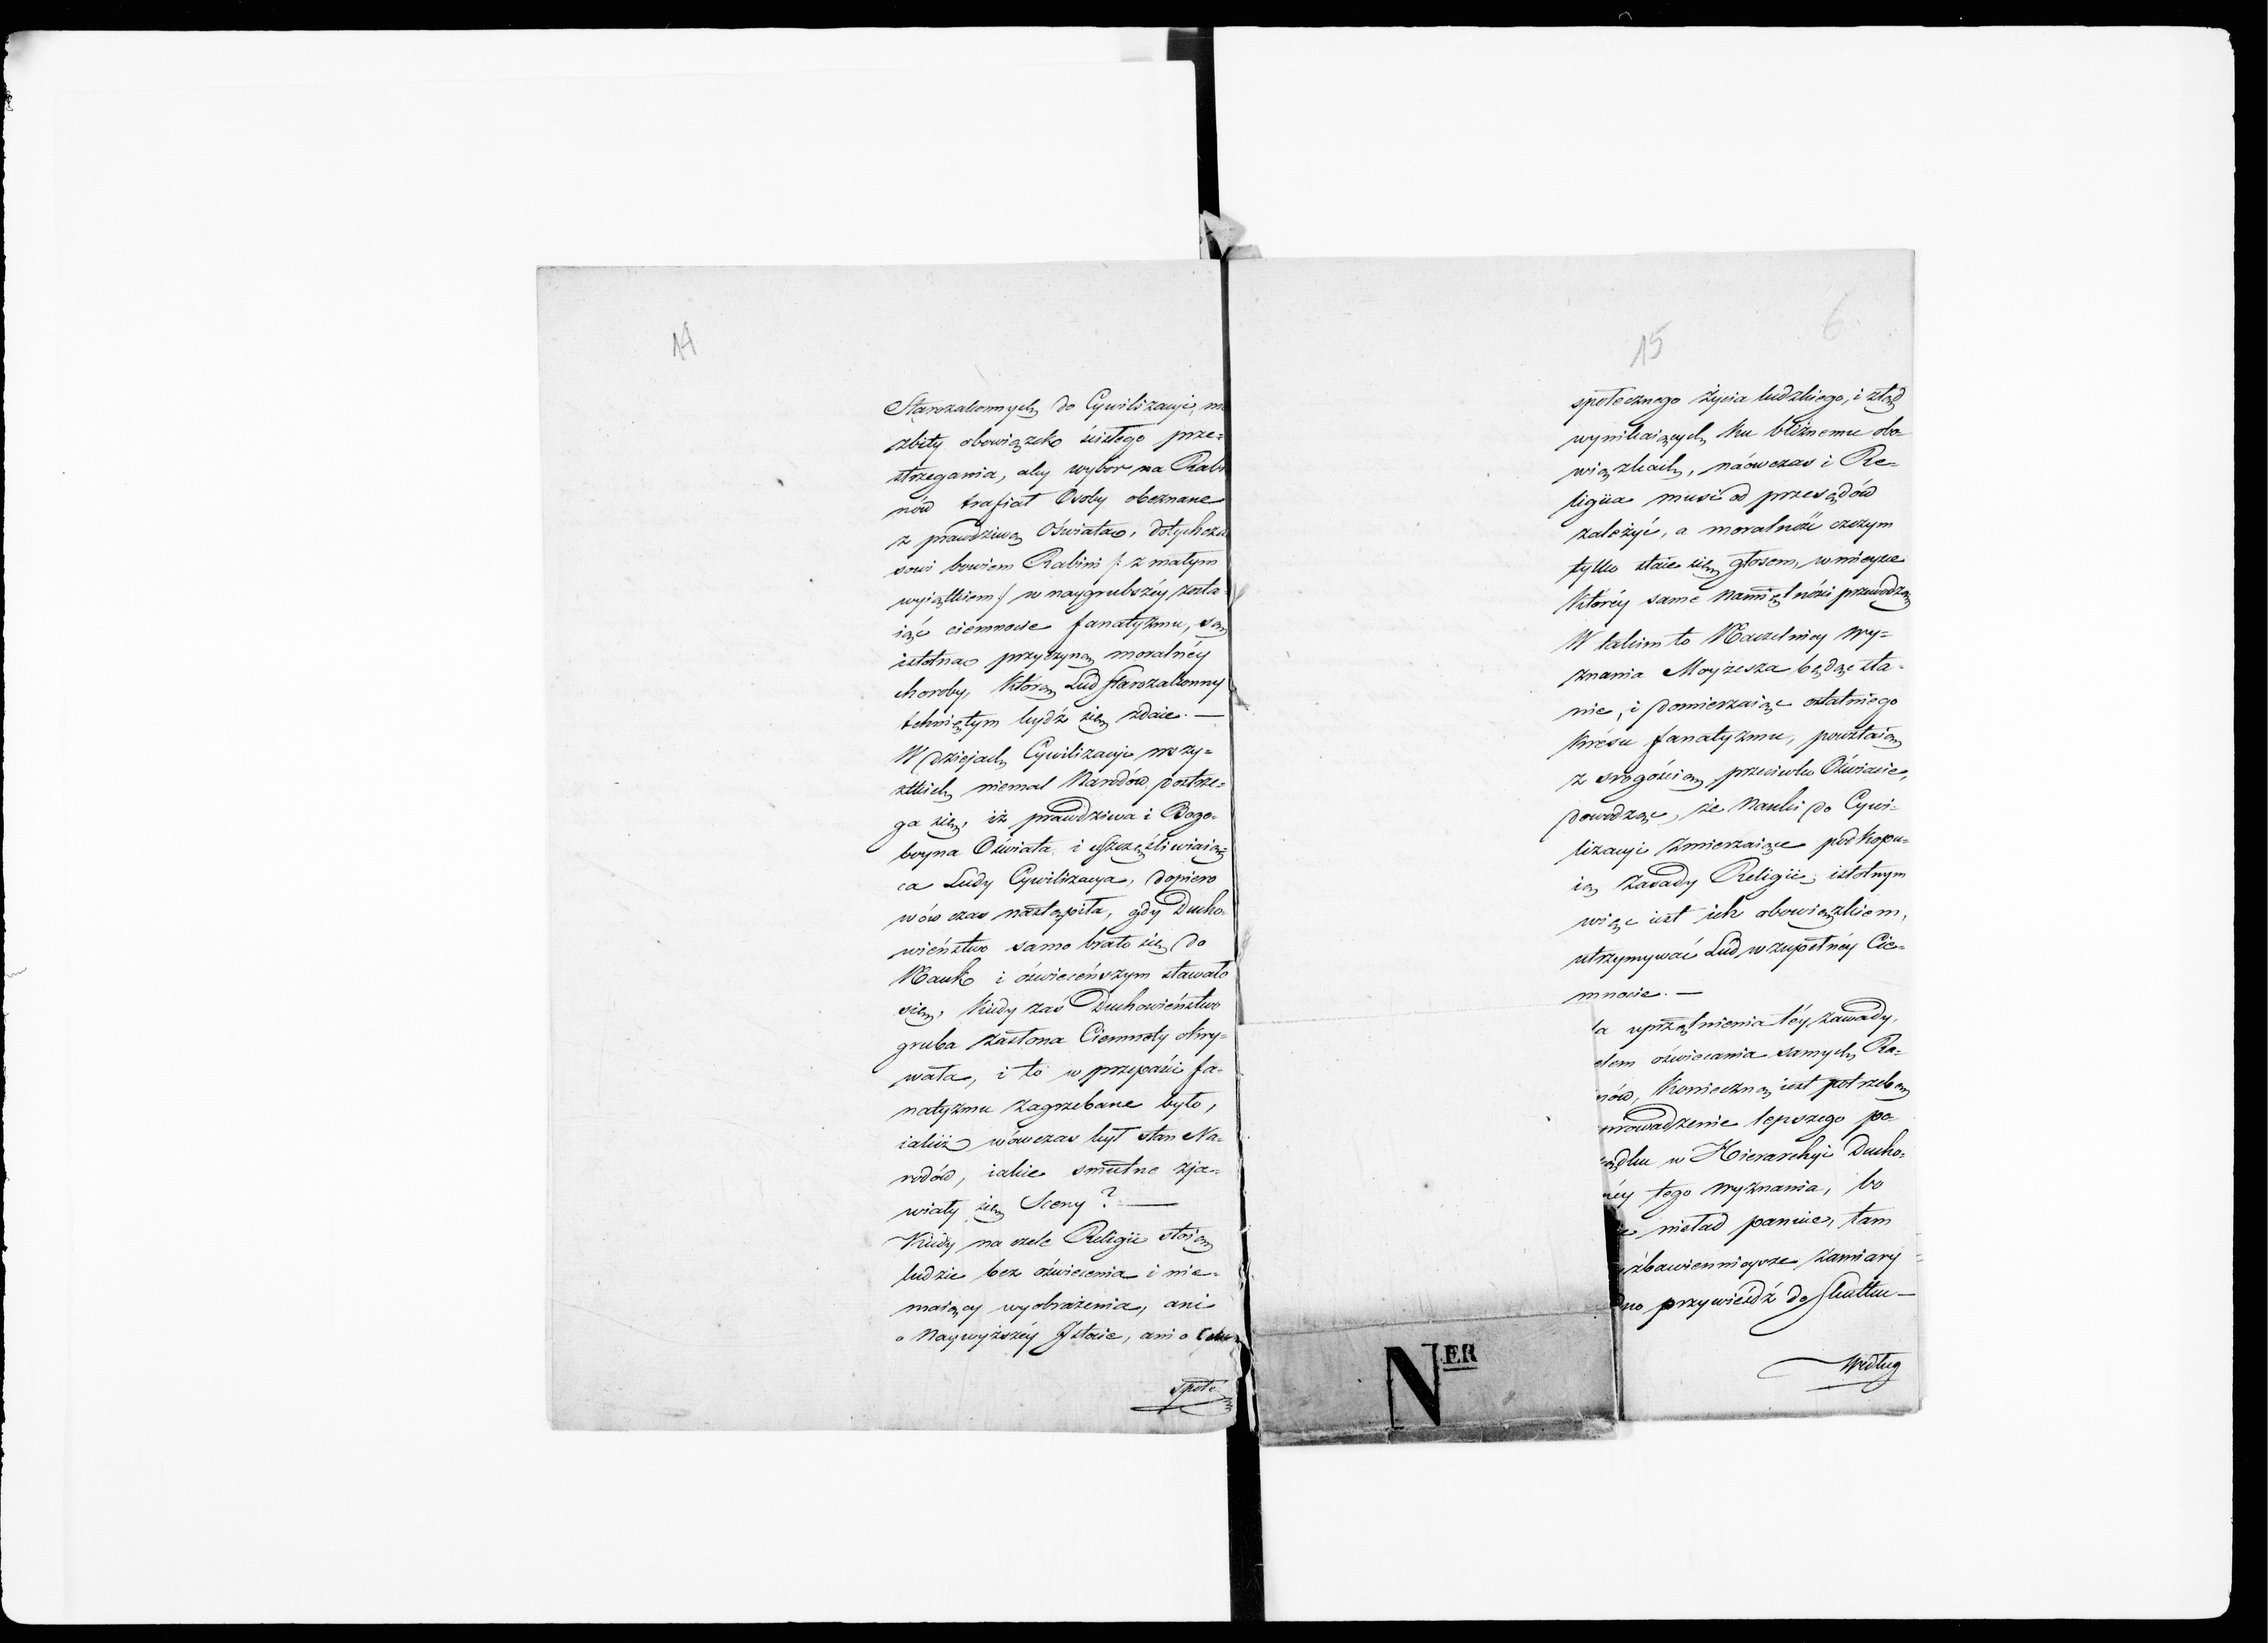 14
Starozakonnych do Cywilizacyi, m
zbity obowiązek ścisłego prze=
strzegania, aby wybór na Rabi
nów trafiał Osoby obeznane
z prawdziwą Oświatą, dotychcza
sowi bowiem Rabini /: z małym
wyiątkiem :/ w naygrubszéy zosta-
iąc ciemnocie fanatyzmu, są
istotną przyczyną moralnéy
choroby, którą Lud starozakonny
tchniętym bydź się zdaie. —
W dziejach Cywilizacyi wszy=
stkich niemal Narodów postrze=
ga się, iż prawdziwa i Bogo-
boyna Oświata i uszczęśliwiaią
ca Ludy Cywilizacya, dopiero
wów czas nastąpiła, gdy Ducho-
wieństwo samo brało się do
Nauk i oświeceńszym stawało
się, kiedy zaś Duchowieństwo
gruba zasłona Ciemnoty okry=
wała, i to w przepaści fa-
natyzmu zagrzebane było,
iakiż wówczas był stan Na-
rodów, iakie smutne zja-
wiały się Sceny? —
Kiedy na czele Religii stoią
ludzie bez oświecenia i nie-
maiący wyobrażenia, ani
o Naywyższéy Istocie, ani o Celu
społe
15
6.
społecznego życia ludzkiego, i ztąd
wynikaiących ku bliźnemu obo-
wiązkach, náówczas i Re-
ligiia musi od przesądów
założyć, a moralność czczym
tylko staie się głosem, w mieysce
któréy same namiętności przewodzą
W takim to Naczelnicy Wy=
znania Moyżesza będąc sta-
nie, i domierzaiąc ostatniego
krésu fanatyzmu, powstaią
z srogością przeciwko Oświacie,
dowodząc, że Nauki do Cywi-
lizacyi zmierzaiące podkopu-
ią zasady Religii, istotnym
więc iest ich obowiązkiem,
utrzymywać Lud w zupełnéy Cie-
mnocie. —
la uprzątnienia téy zawady,
elem oświecania samych Ra-
nów, konieczną iest potrzebą
prowadzenie lepszego po-
ządku w Hierarchyi Ducho-
néy tego Wyznania, bo
e nieład panuie, tam
zbawiennieysze zamiary
dno przywieśdź do skutku —
Według
NER